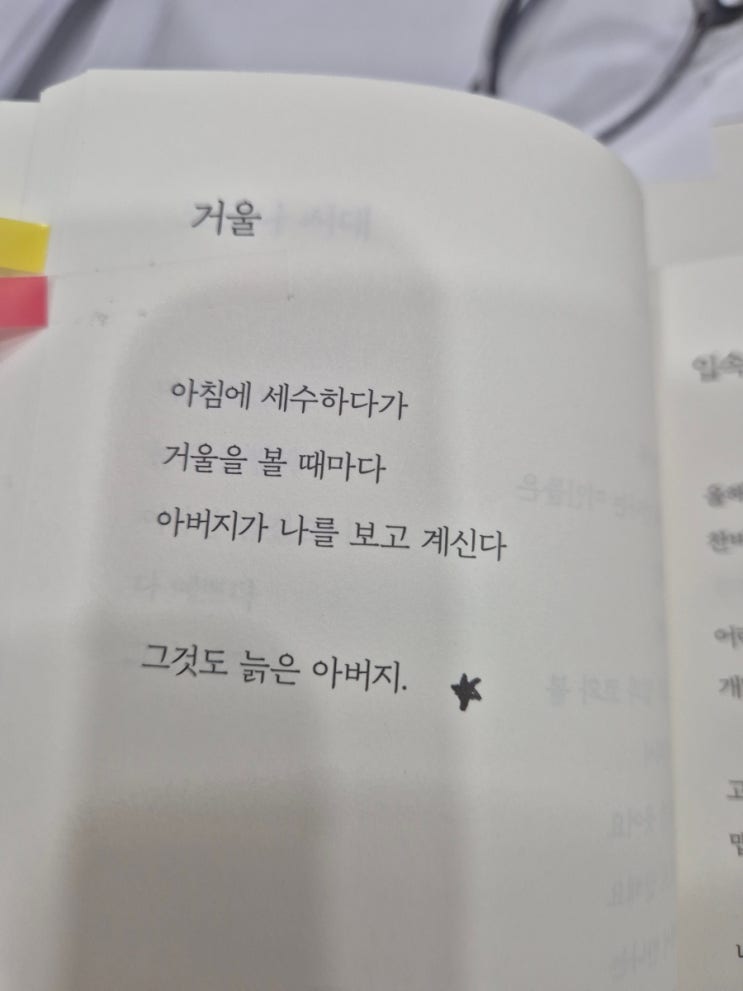 거울
아침에 세수하다가
거울을 볼 때마다
아버지가 나를 보고 계신다
그것도 늙은 아버지.